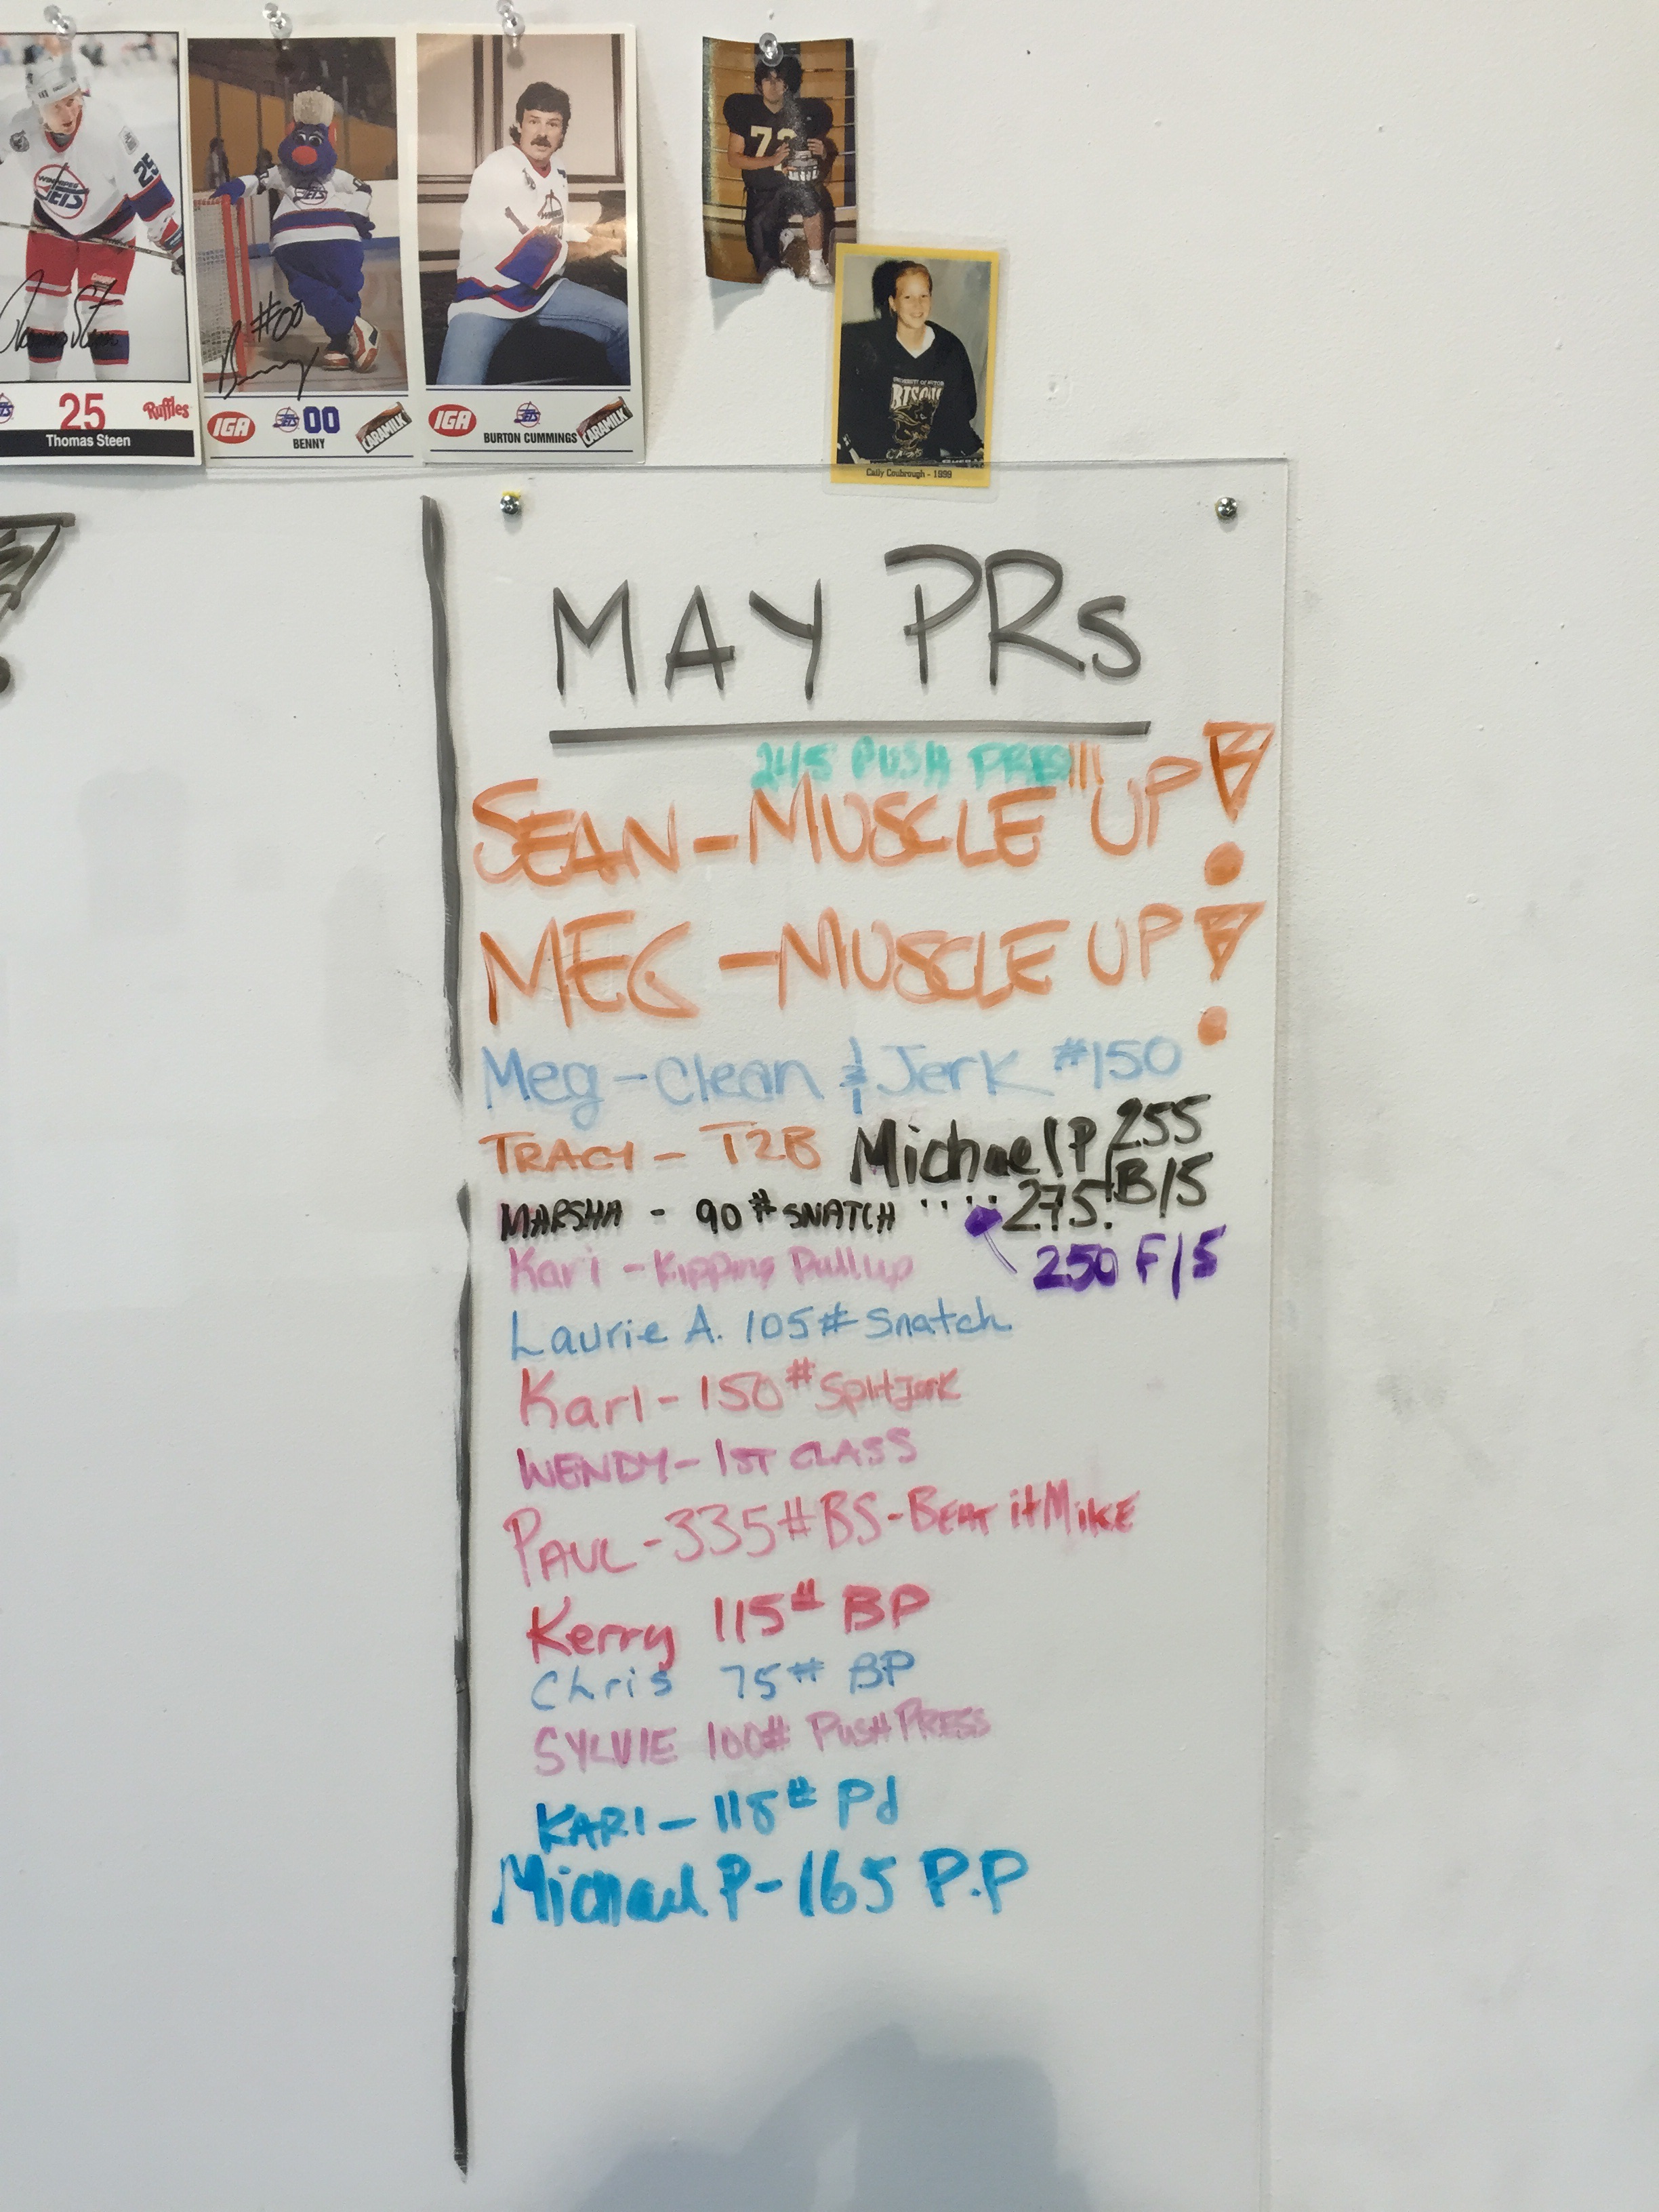 WINNIPEG
JETS
25
25
Ruffles
Thomas Steen
Thomas Steen
JETS
#00
Benny
IGA
JETS
00
BENNY
CARAMILK
IGA
JETS
BURTON CUMMINGS
CARAMILK
BISONS
Cally Coubrough - 1999
MAY PRs
245 PUSH PRESS!!!
SEAN - MUSCLE UP!
MEG - MUSCLE UP!
Meg - Clean & Jerk #150
TRACY - T2B
Michael P 255 B/5
MARSHA - 90# SNATCH
275.
Kari - Kipping Pullup
250 F/5
Laurie A. 105# Snatch
Kari - 150# Split Jerk
WENDY - 1ST CLASS
PAUL - 335# BS - BEAT it MIKE
Kerry 115# BP
Chris 75# BP
SYLVIE 100# PUSH PRESS
KARI - 118# Pd
Michael P - 165 P.P